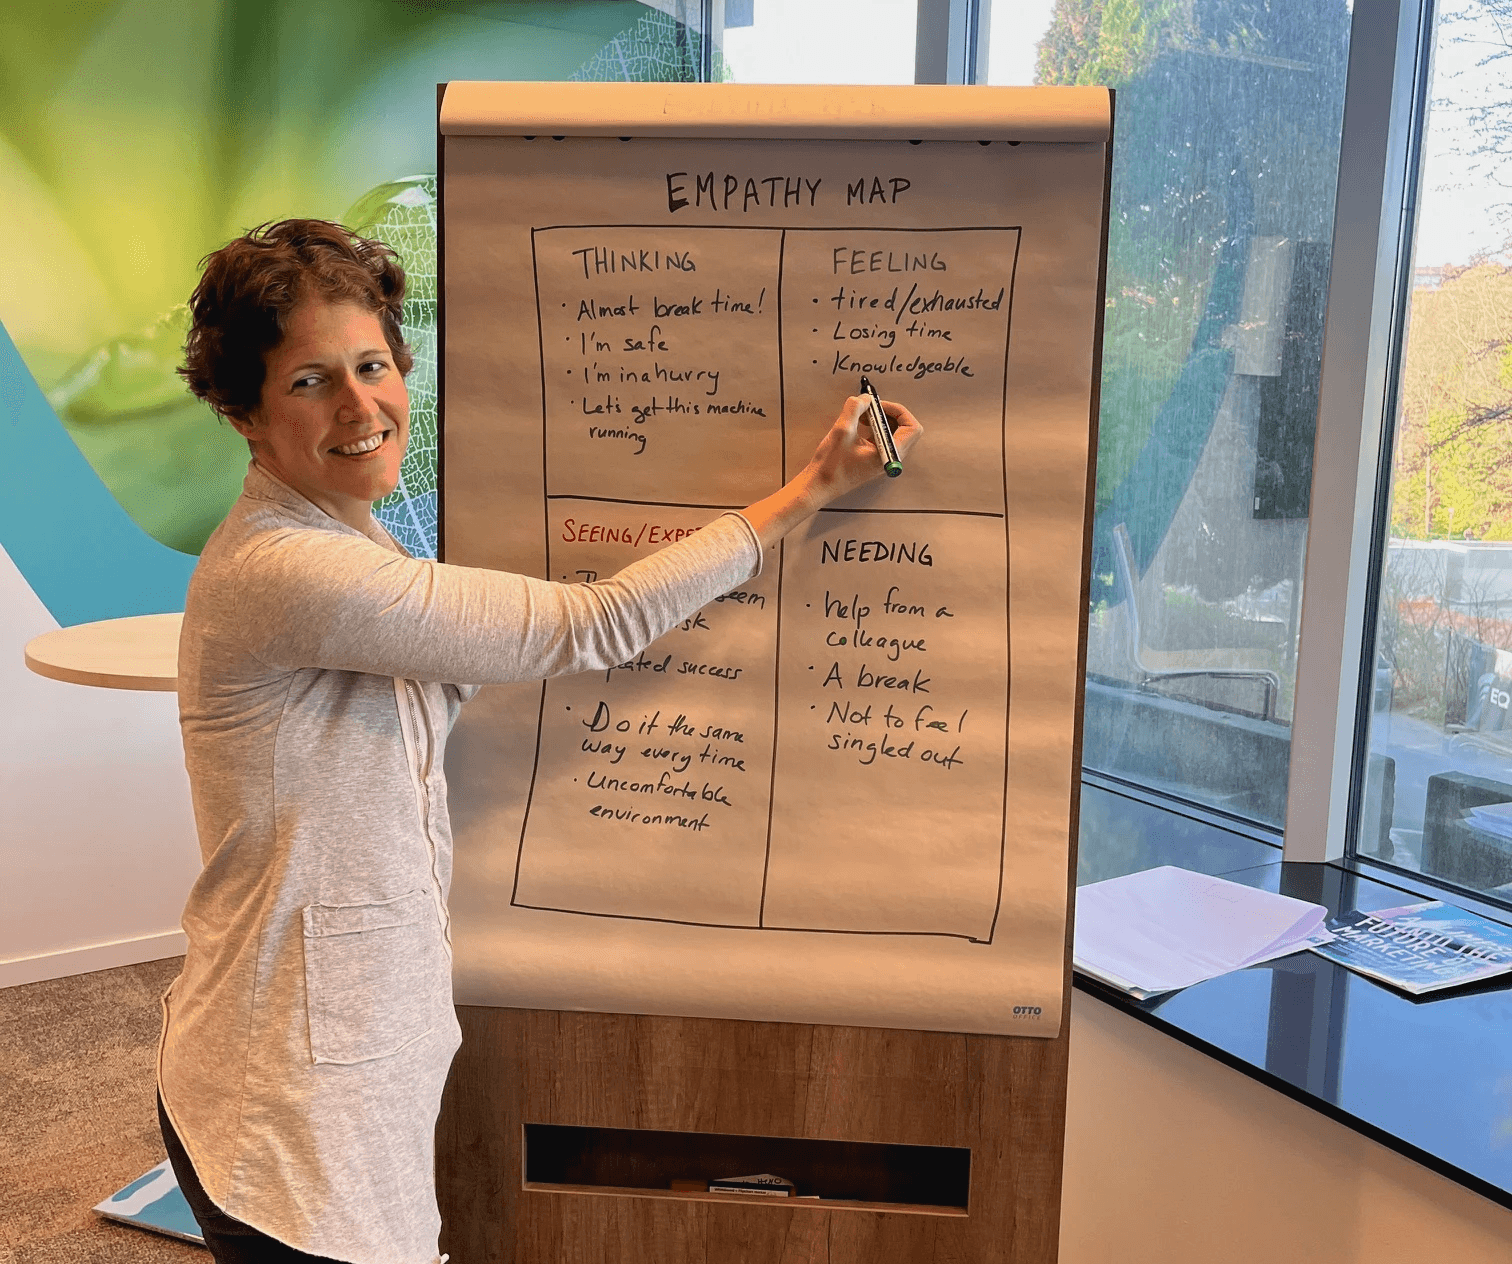 EMPATHY MAP
THINKING
· Almost break time!
· I'm safe
· I'm in a hurry
· Let's get this machine
running
FEELING
· tired/exhausted
· Losing time
· Knowledgeable
SEEING/
seem
success
· Do it the same
way every time
· Uncomfortable
environment
NEEDING
· help from a
colleague
· A break
· Not to feel
singled out
OTTO
OFFICE
FUTURE
MARKETING